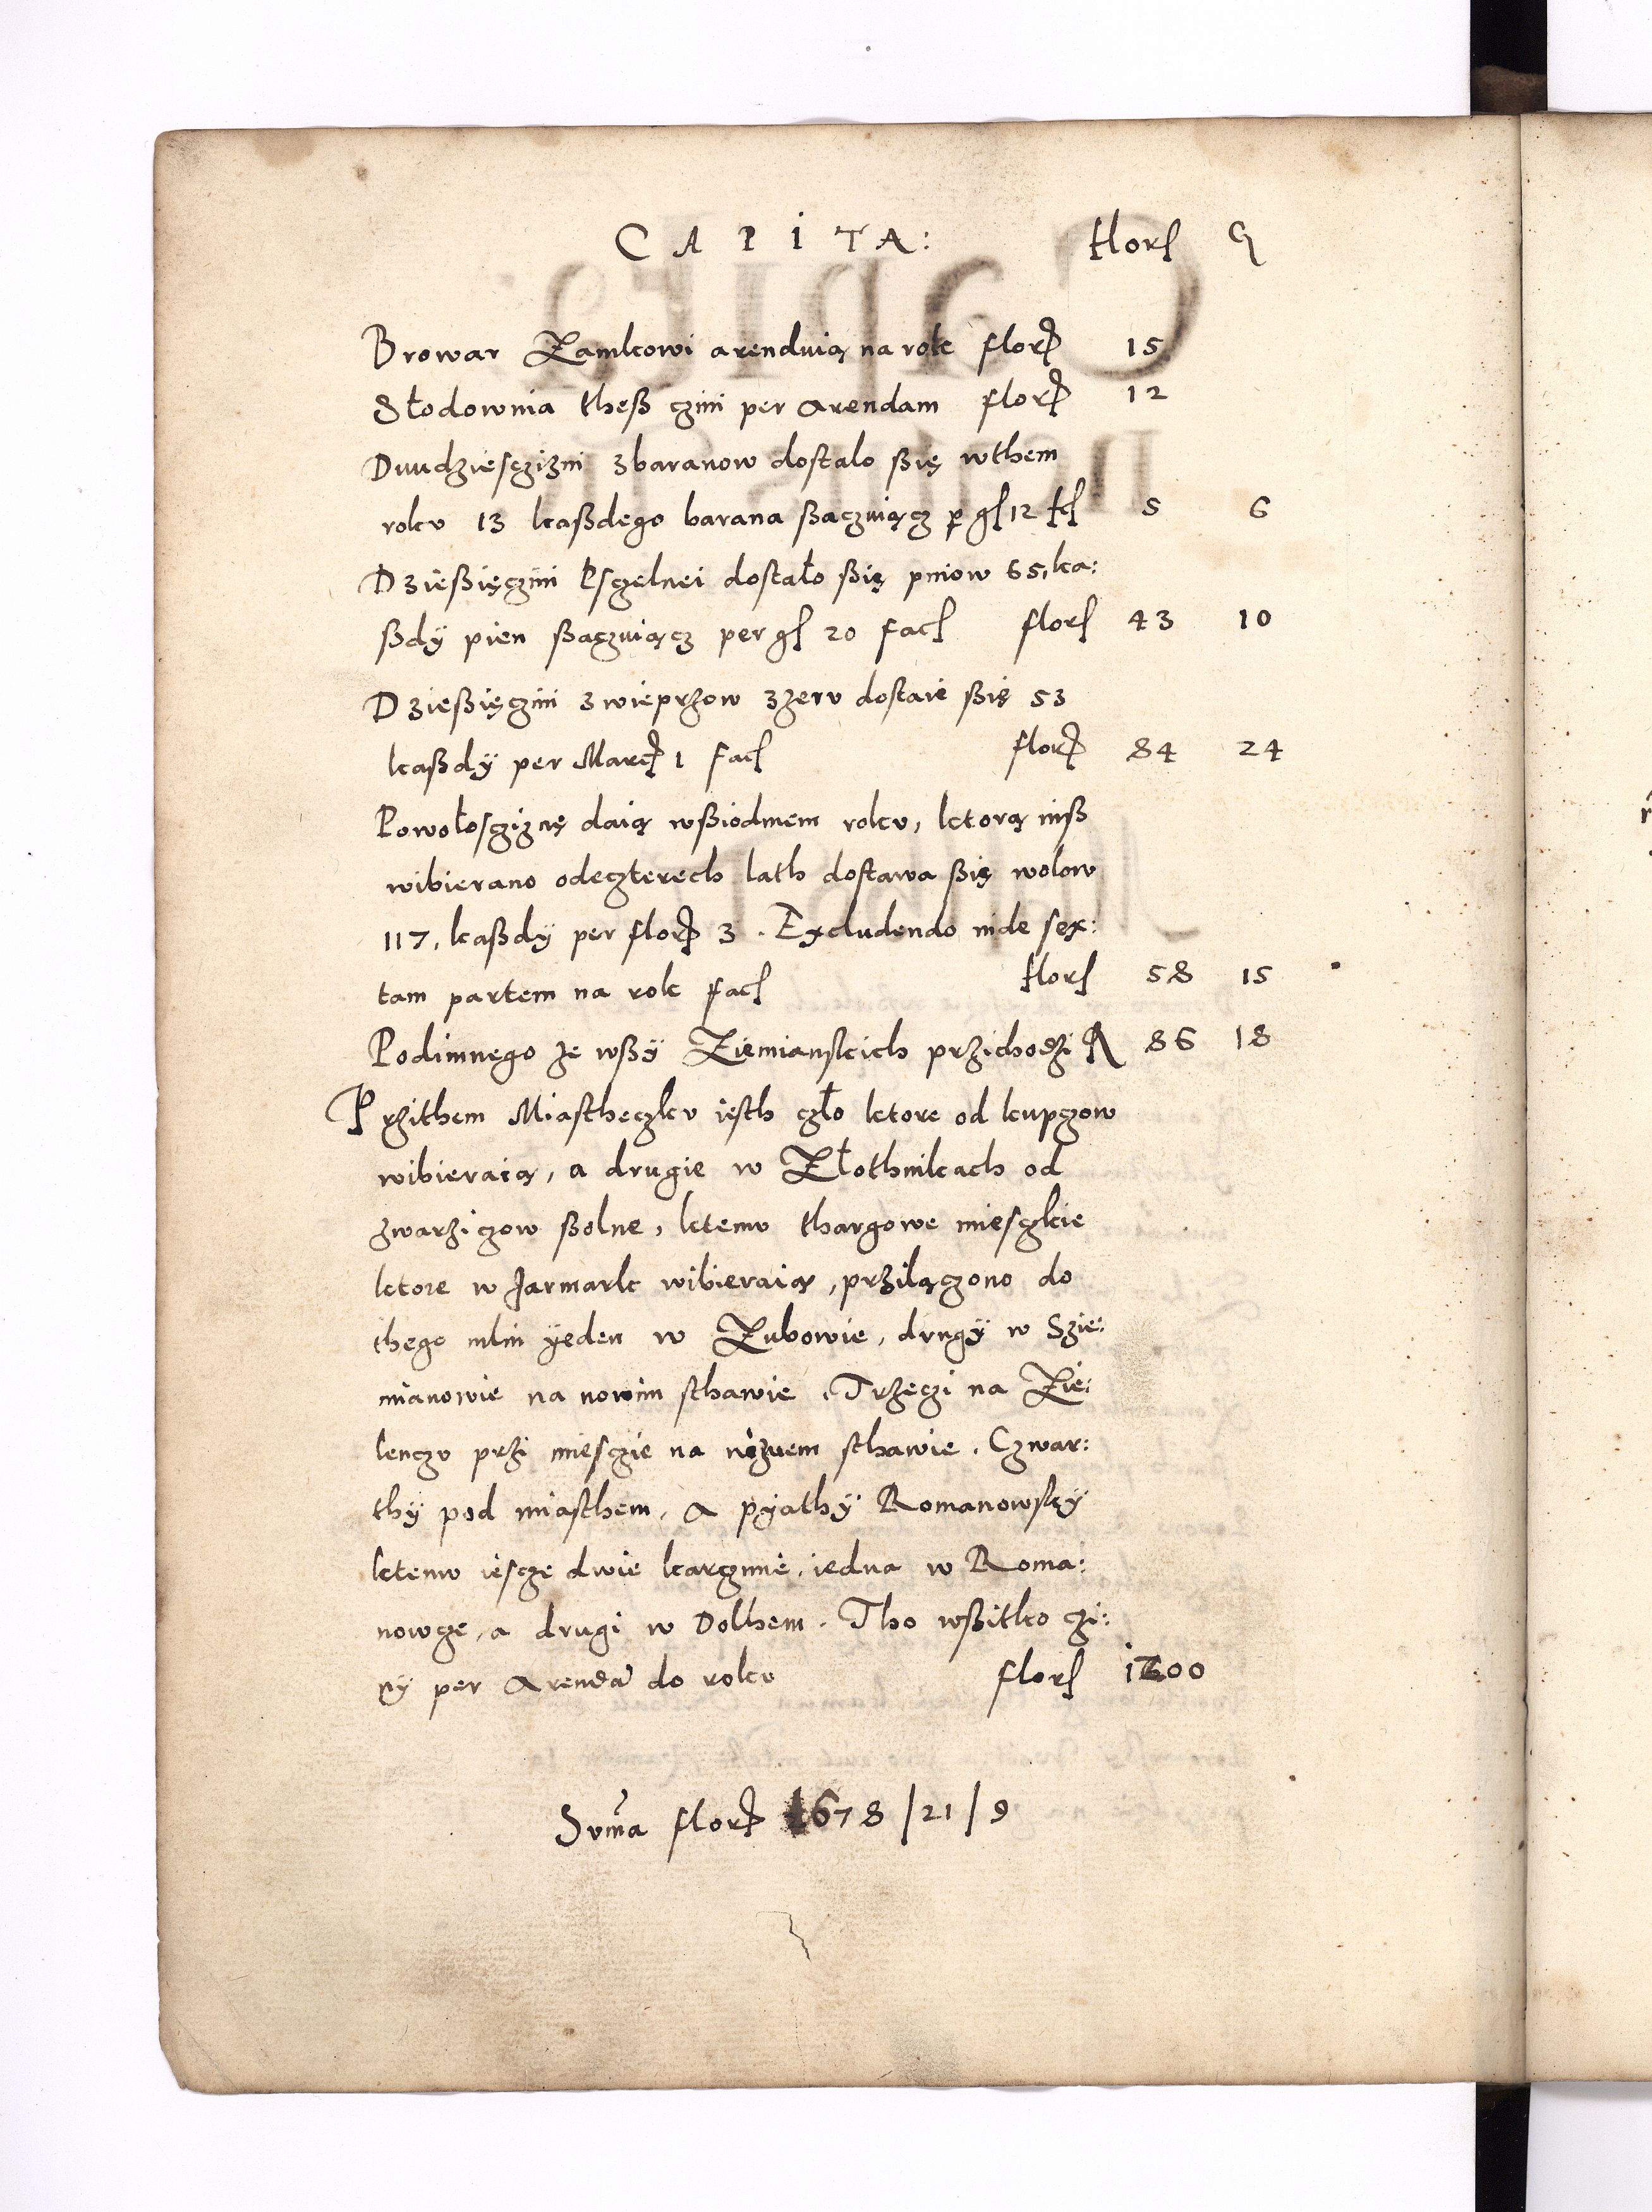 CAPITA: flor g
Browar Zamkowi arenduią na rok flor 15
Słodownia theß czini per arendam flor 12
Dwudziesczizni zbaranow dostalo ßię wthem
roku 13 kaßdego barana ßaczuiącz per g 12 fl 5 6
Dzießięczini Psczelnei dostało ßię pniow 65, ka:
ßdÿ pien ßaczuiącz per g 20 fac flor 43 10
Dzießięczini zwieprzow zzeru dostaie ßię 53
kaßdÿ per Marc 1 fac flor 84 24
Powołoscziznę daią wßiodmem roku, ktorą niß
wibierano odeczterech lath dostawa ßię wolow
117, kaßdÿ per flor 3. Excludendo inde sex:
tam partem na rok fac flor 58 15
Podimnego ze wßÿ Ziemianskich przichodzi fl 86 18
Przithem Miastheczku iesth czło ktore od kupczow
wibieraią, a drugie w Złothnikach od
zwarziczow ßolne, ktemu thargowe miesczkie
ktore w Jarmark wibieraią, przilączono do
thego mlin ÿeden w Zubowie, drugÿ w Szie:
mianowie na nowim sthawie, Trzeczi na Zie:
lenczu przi miesczie na nizuem sthawie. Czwar:
thÿ pod miasthem, a pÿathÿ Romanowskÿ
ktemu iescze dwie karczmie, iedna w Roma:
nowce, a drugi w Dolhem. Tho wßitko czi:
nÿ per Arendã do roku flor 1200
Sum̃a flor 1678 / 21 / 9